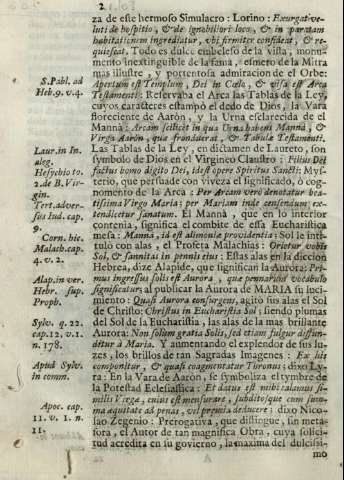 2
za de este hermoso Simulacro : Lorino : Exurgat ve-
luti de hospitio, & de ignobiliori loco, & in paratam
habitationem ingrediatur, vbi firmiter consideat, & re-
quiescat. Todo es dulce embeleso de la vista, monu-
mento inextinguible de la fama, esmero de la Mitra
mas illustre, y portentosa admiracion de el Orbe:
S. Pabl. ad
Heb. 9. v. 4.
Apertum est Templum, Dei in Cœlo, & visa est Arca
Testamenti: Reservaba el Arca las Tablas de la Ley,
cuyos caractères estampò el dedo de Dios, la Vara
floreciente de Aaròn, y la Urna esclarecida de el
Mannà: Arcam scilicet in qua Urna habens Mannà, &
Virga Aaròn, qua fronduerat, & Tabulæ Testamenti.
Laur. in In.
aleg.
Hesychio to.
2. de B. Vir-
gin.
Tert. adver-
sus Iud. cap.
9.
Las Tablas de la Ley, en dictamen de Laureto, son
symbolo de Dios en el Virgineo Claustro : Filius Dei
factus homo digito Dei, idest opere Spiritus Sancti: Mys-
terio, que persuade con viveza el significado, ò cog-
nomento de la Arca : Per Arcam verò denotatur bea-
tissima Virgo Maria: per Mariam inde censendum ex-
tendicetur sanatum. El Mannà, que en lo interior
contenia, significa el combite de esta Eucharistica
Corn. hic.
Malach. cap.
4. v. 2.
mesa : Mannà, id est alimonia providentia: Sol le inti-
tulò con alas, el Profeta Malachias : Orietur vobis
Sol, & sannitas in pennis eius: Estas alas en la diccion
Hebrea, dize Alapide, que significan la Aurora: Pri-
Alap. in ver.
Hebr. sup.
Proph.
mus ingressus solis est Aurora, que pennarum vocabulo
significatur; al publicar la Aurora de MARIA su luci-
miento: Quasi Aurora consurgens, agitò sus alas el Sol
de Christo: Christus in Eucharistia Sol; siendo plumas
del Sol de la Eucharistia, las alas de la mas brillante
Sylv. q. 22.
cap. 12. v. 1.
n. 178.
Aurora: Non solum gratia Solis, sed etiam fulgor diffun-
ditur à Maria. Y aumentando el explendor de sus lu-
zes, los brillos de tan Sagradas Imagenes : Ex his
Apud Sylv.
in comm.
componitur, & quasi coagmentatur Thronus; dixo Ly-
ra: En la Vara de Aaròn, se symboliza el tymbre de
la Potestad Eclesiastica : Et datus est mihi calamus si-
milis Virgæ, cuius est mensurare, subditosque cum sum-
Apoc. cap.
11. v. 1. n.
11.
ma æquitate ad penas, vel præmia deducere; dixo Nico-
lao Zegenio : Prerogativa, que distingue, sin meta-
fora, el Autor de tan magnifica Obra, cuya solici-
tud acredita en su govierno, la maxima del dulcissi-
mo